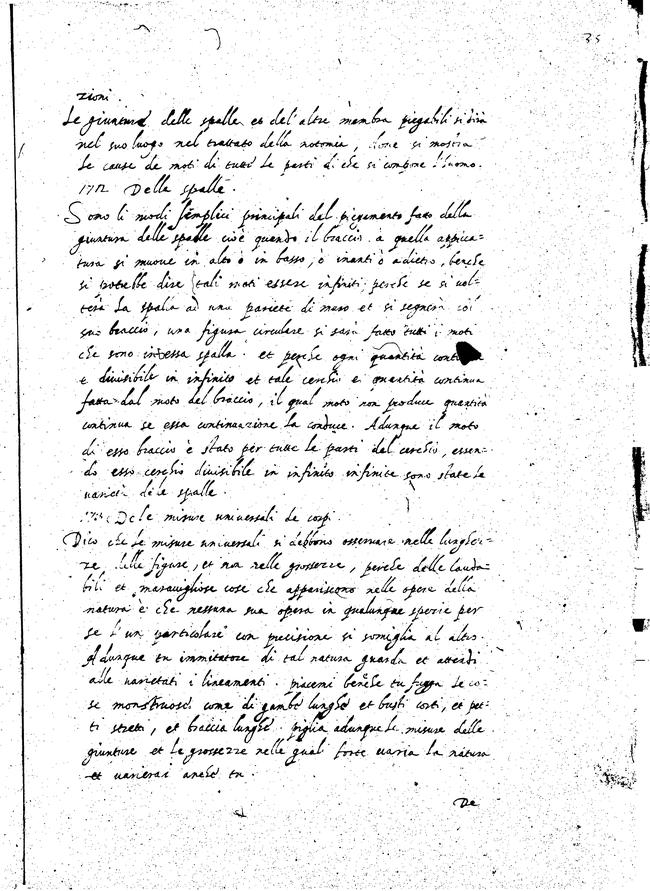 35
zioni.
Le giunture delle spalle et del'altre membra piegabili si dirà
nel suo luogo nel trattato della notomia, doue si mostra
le cause de moti di tutte le parti di che si compone l'huomo.
172 Della spalle.
Sono li modi semplici principali del piegamento fatto della
giuntura delle spalle cioè quando il braccio a quella appica=
tura si muove in alto ò in basso, ò inanti ò adietro, benche
si potrebbe dire tali moti essere infiniti, perche se si vol=
terà la spalla ad una pariete di muro et si segnerà col
suo braccio, una figura circulare si sarà fatto tutti i moti
che sono in essa spalla. et perche ogni quantità continua
e divisibile in infinito et tale cerchio e quantità continua
fatta dal moto del braccio, il qual moto non produce quantità
continua se essa continuazione la conduce. Adunque il moto
di esso braccio è stato per tutte le parti del cerchio, essen=
do esso cerchio divisibile in infinito infinite sono state le
varietà dele spalle.
173 Dele misure universali de corpi.
Dico che le misure universali si debbono osservare nelle lunghez=
ze delle figure, et non nelle grossezze, perche delle lauda=
bili et maravigliose cose che appariscono nelle opere della
natura è che nessuna sua opera in qualunque specie per
se l'un particolare con precisione si somiglia al altro.
Adunque tu immitatore di tal natura guarda et attendi
alle varietati i lineamenti. piacemi benche tu fugga le co=
se monstruose come di gambe lunghe et busti corti, et pet=
ti stretti, et braccia lunghe. piglia adunque le misure delle
giunture et le grossezze nelle qual forte varia la natura
et varierai anche tu.
De